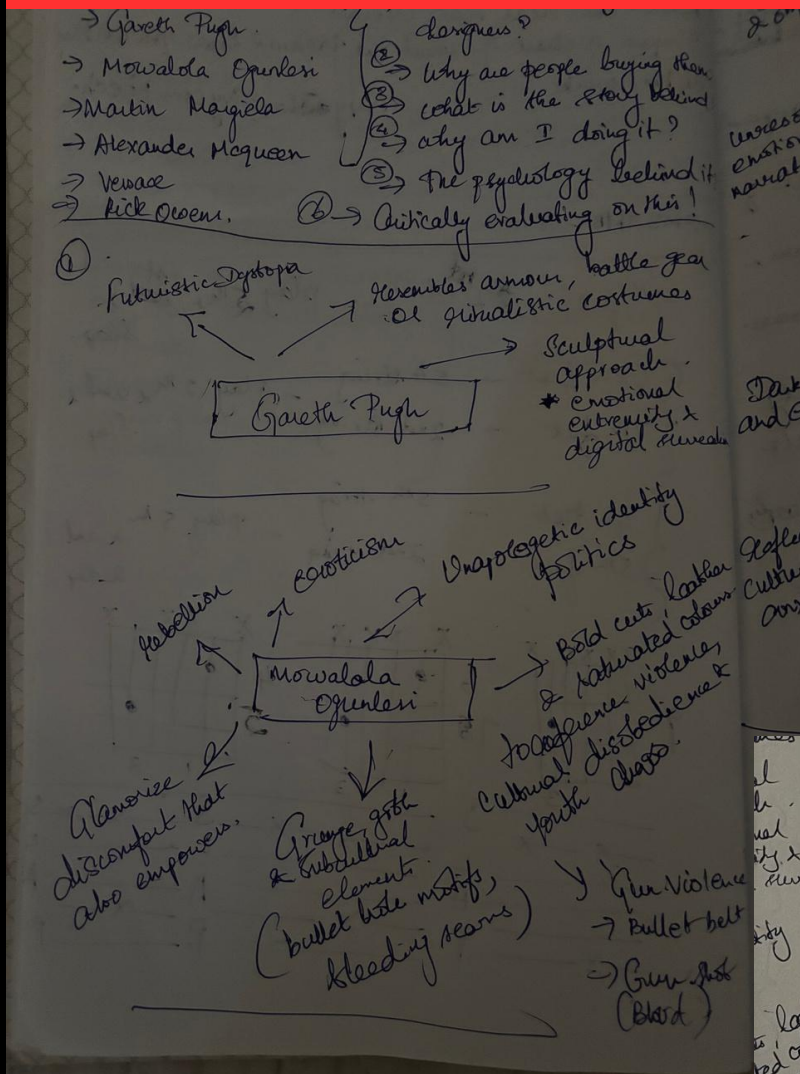 → Gareth Pugh.
→ Mowalola Ogunlesi
→ Martin Margiela
→ Alexander Mcqueen
→ Versace
→ Rick Owens.
designers?
② → Why are people buying them
③ → what is the story behind
④ → why am I doing it?
⑤ → The psychology behind it
⑥ → Critically evaluating on this!
①
Futuristic Dystopia
Resembles armour, battle gear
or ritualistic costumes
Sculptural
approach.
* emotional
extremity &
digital
Gareth Pugh
Rebellion
eroticism
Unapologetic identity
politics
Mowalola
Ogunlesi
Bold cuts, leather
& saturated colours
to reference violence,
cultural disobedience &
youth chaos.
Glamorize
discomfort that
also empowers.
Grunge, goth
& subcultural
elements.
(bullet hole motifs,
bleeding seams)
Gun Violence
→ Bullet belt
→ Gun shot
(Blood)
emotion
and